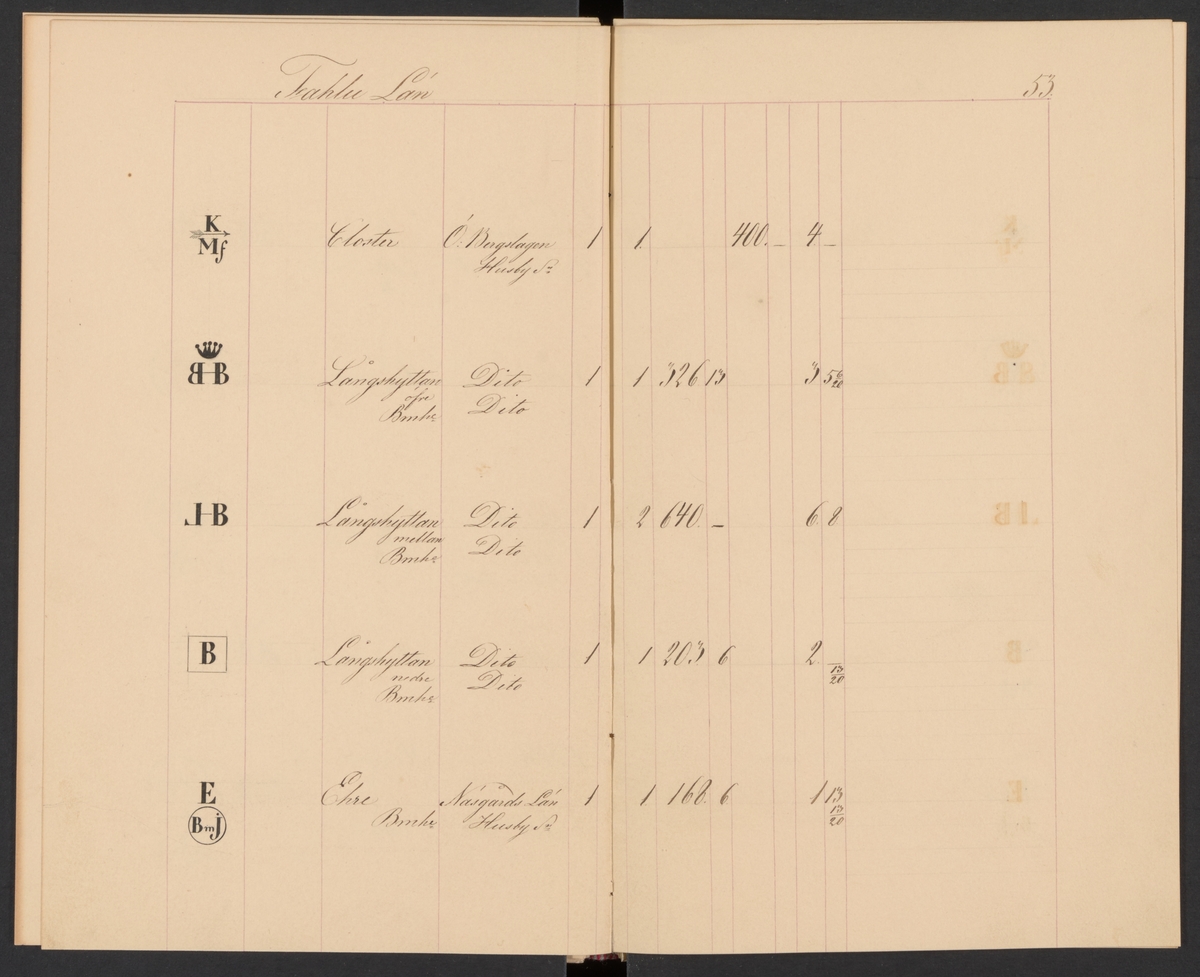 Fahlu Län 53.
K
Mf
Closter Ö. Bergslagen 1 1. 400. – 4 –
Husby Sn
BHB
Långshyttan Dito 1 1 326 13 3 5 6/20
öfre Dito
Bmhe
JHB
Långshyttan Dito 1 2 640. – 6. 8
mellan Dito
Bmhe
B
Långshyttan Dito 1 1 203 6 2. – 13/20
nedre Dito
Bmhe
E
BmJ
Ehre Näsgårds Län 1 1 168. 6 1 13 13/20
Bmhe Husby Sn